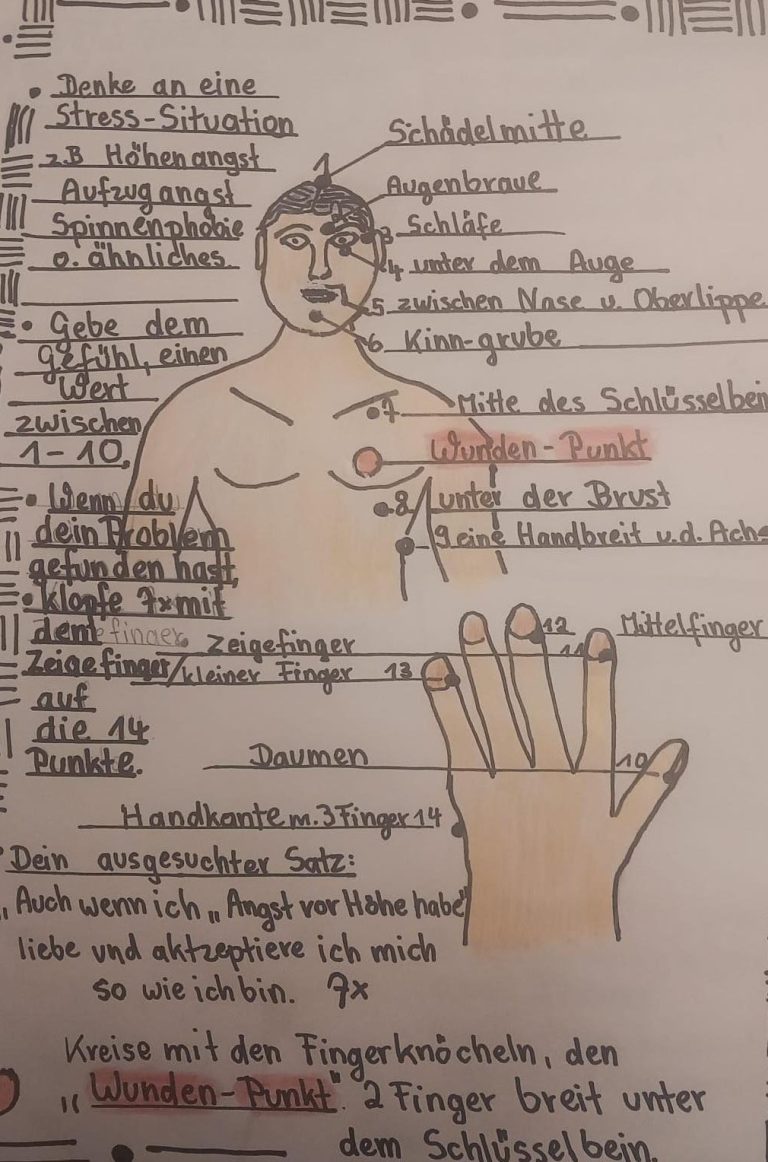 • Denke an eine
Stress-Situation
z.B Höhenangst
Aufzugangst
Spinnenphobie
o. ähnliches
• Gebe dem
gefühl, einen
Wert
zwischen
1-10.
• Wenn du
dein Problem
gefunden hast,
• klopfe 7x mit
dem
Zeigefinger
auf
die 14
Punkte.
1 Schädelmitte
Augenbraue
3 Schläfe
4 unter dem Auge
5 zwischen Nase u. Oberlippe
6 Kinn-grube
7 Mitte des Schlüsselbein
Wunden-Punkt
8 unter der Brust
9 eine Handbreit u.d. Achs
12 Mittelfinger
Zeigefinger 11
kleiner Finger 13
Daumen 10
Handkante m. 3 Finger 14
• Dein ausgesuchter Satz:
„Auch wenn ich „Angst vor Höhe habe"
liebe und aktzeptiere ich mich
so wie ich bin. 7x
Kreise mit den Fingerknöcheln, den
„Wunden-Punkt". 2 Finger breit unter
dem Schlüsselbein.